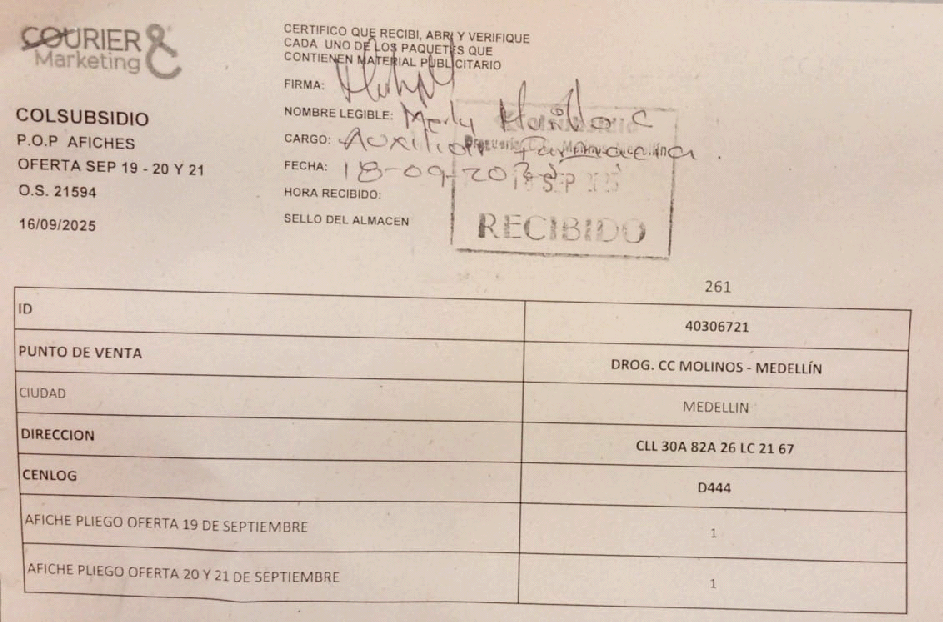 COURIER &
Marketing
COLSUBSIDIO
P.O.P AFICHES
OFERTA SEP 19 - 20 Y 21
O.S. 21594
16/09/2025
CERTIFICO QUE RECIBI, ABRI Y VERIFIQUE
CADA UNO DE LOS PAQUETES QUE
CONTIENEN MATERIAL PUBLICITARIO
FIRMA:
NOMBRE LEGIBLE: C
CARGO: Auxiliar
FECHA: 18-09-
HORA RECIBIDO:
SELLO DEL ALMACEN
SEP
RECIBIDO
261
ID 40306721
PUNTO DE VENTA DROG. CC MOLINOS - MEDELLÍN
CIUDAD MEDELLIN
DIRECCION CLL 30A 82A 26 LC 21 67
CENLOG D444
AFICHE PLIEGO OFERTA 19 DE SEPTIEMBRE 1
AFICHE PLIEGO OFERTA 20 Y 21 DE SEPTIEMBRE 1